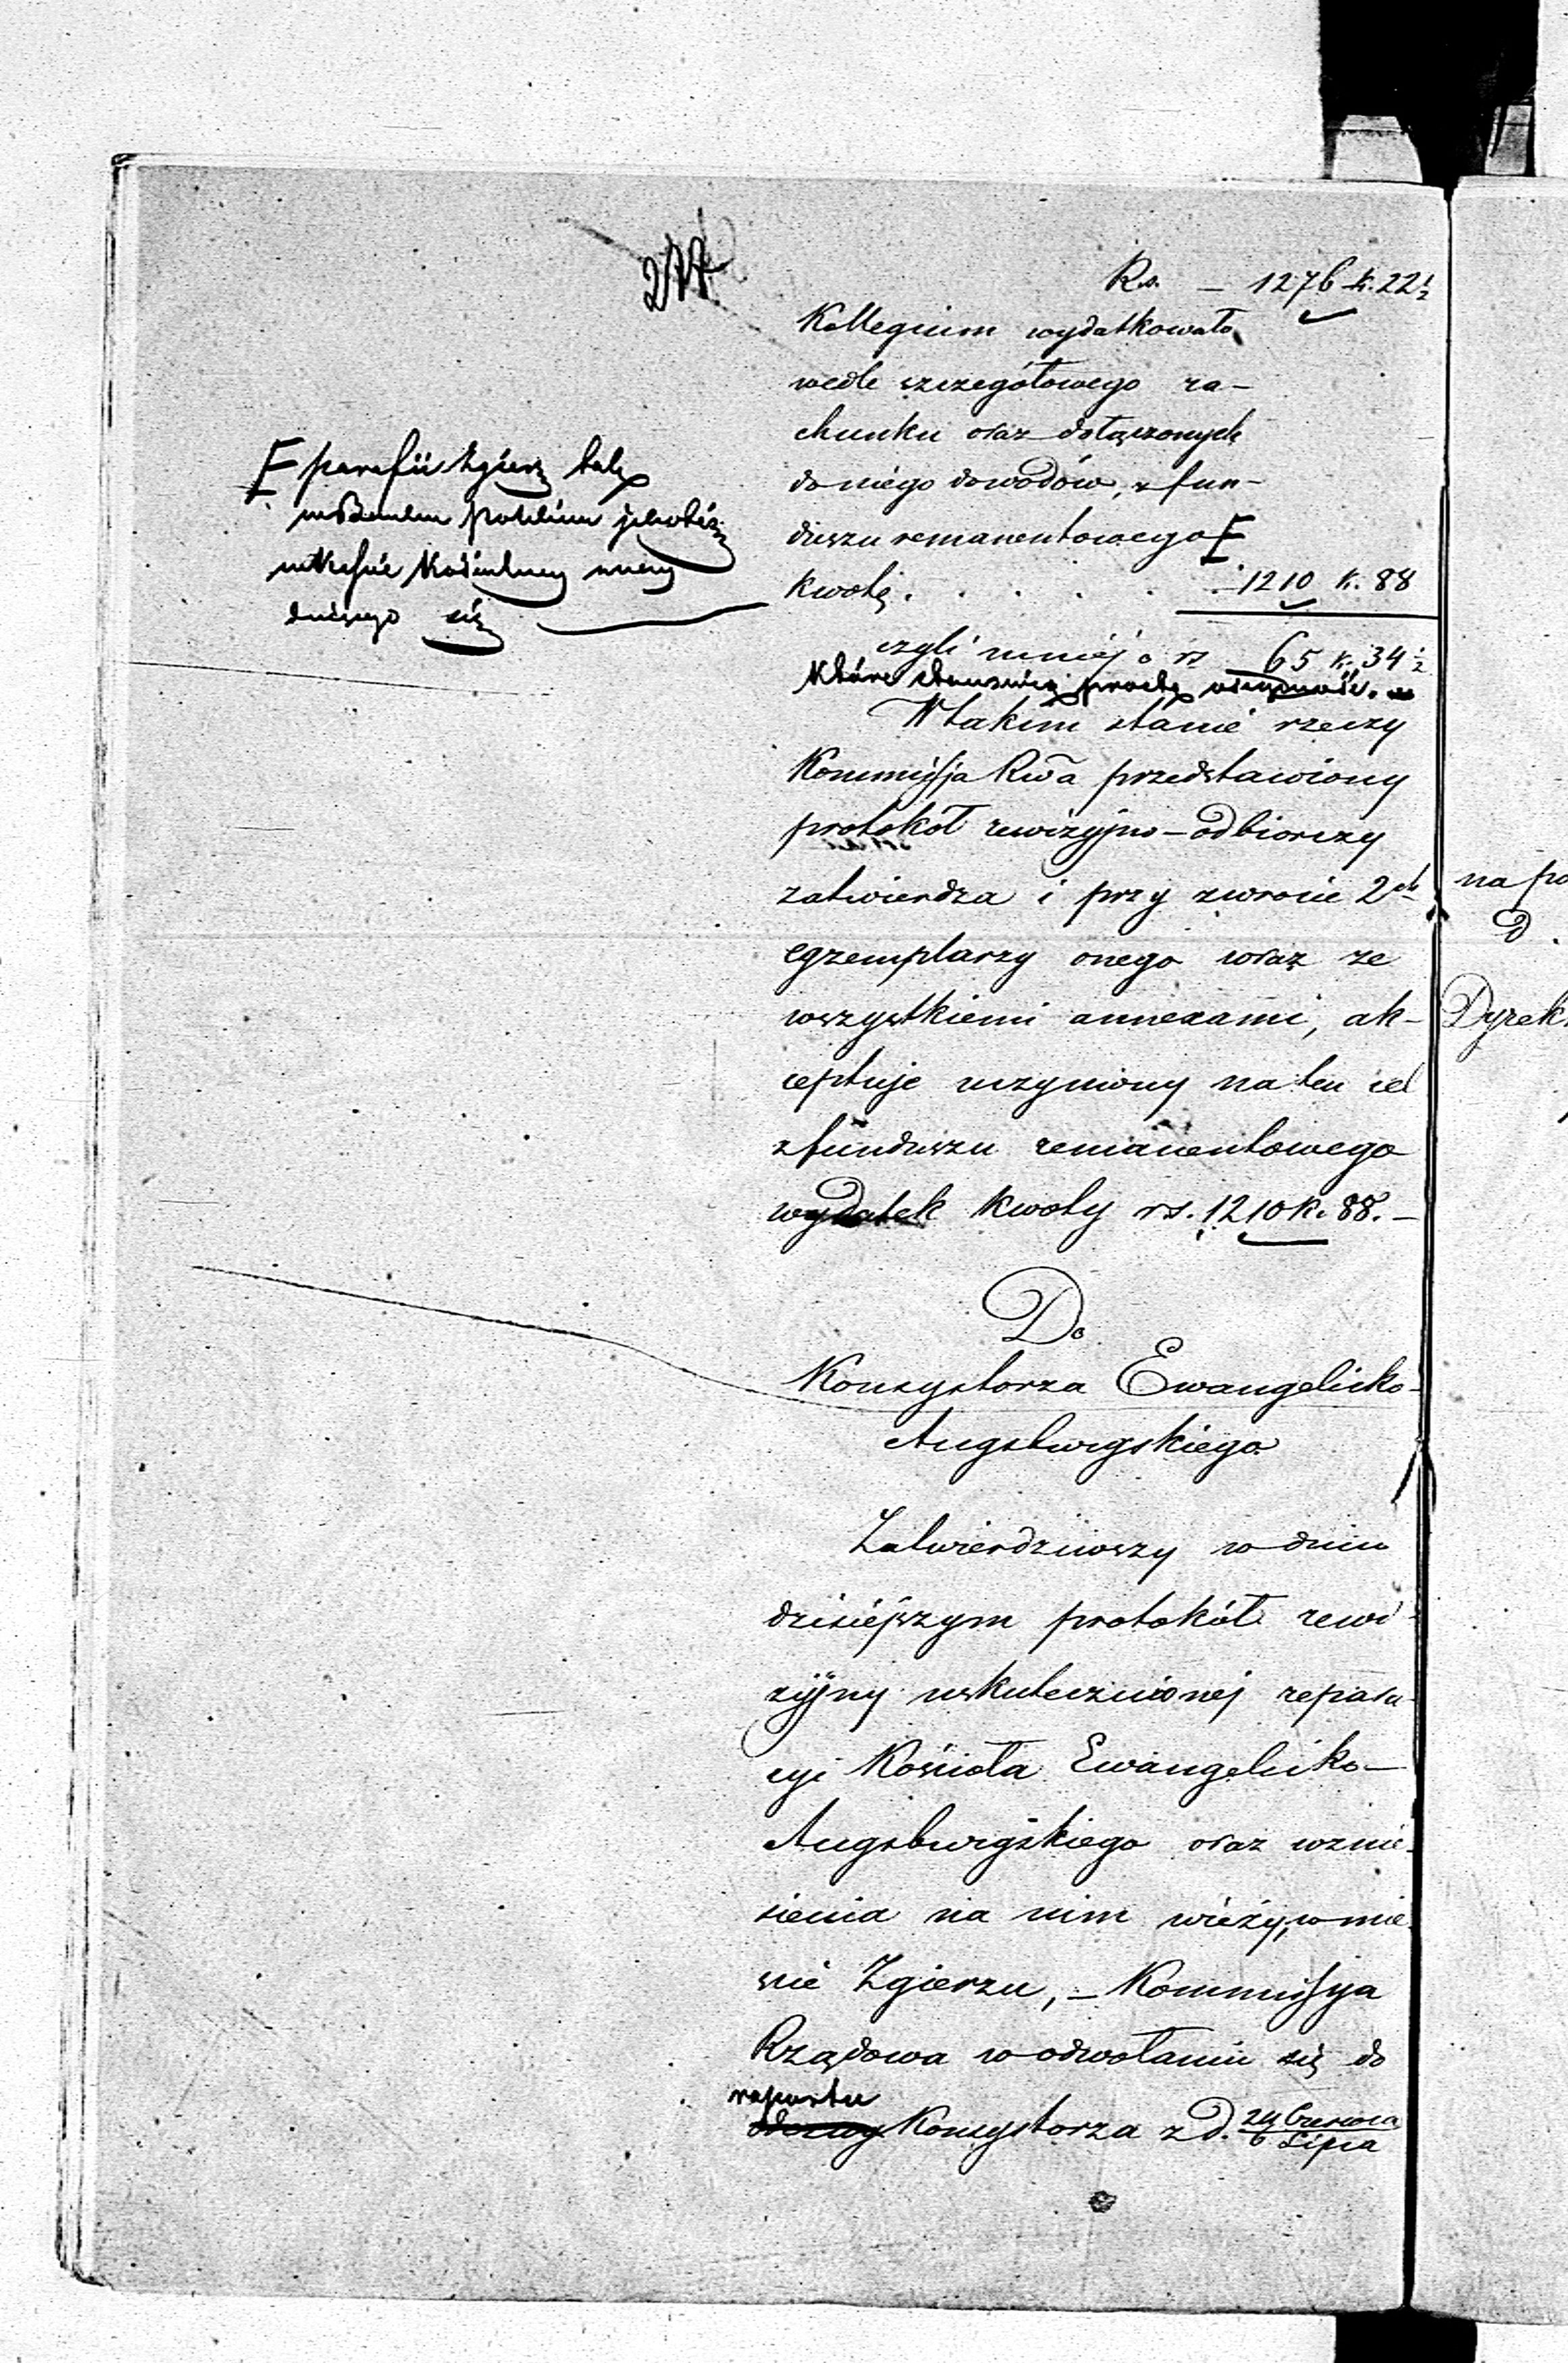 Rs. — 1276 k. 22½
Kollegium wydatkowało
wedle szczegółowego ra-
chunku oraz dołączonych
do niego dowodów, z fun-
duszu remanentowego F
kwotę . . . . . 1210 k. 88
czyli mniéj o rs 65 k. 34½
które stanowią prostą oszczędność.
W takim stanie rzeczy
Kommissja Rwa przedstawiony
protokół rewizyjno-odbiorczy
zatwierdza i przy zwrocie 2ch
egzemplarzy onego wraz ze
wszystkiemi annexami, ak-
ceptuje uczyniony na ten cel
z funduszu remanentowego
wydatek kwoty rs. 1210 k. 88. —
F parafii Zgierz tak
w Banku Polskim jako też
w Kassie Kościelnej znaj
dującego się
Do
Konsystorza Ewangelicko-
Augsburgskiego
Zatwierdziwszy w dniu
dzisiéjszym protokół rewi-
zyjny uskutecznionej repara-
cyi Kościoła Ewangelicko-
Augsburgskiego oraz wznie-
sienia na nim wieży, w mie-
ście Zgierzu, — Kommissya
Rządowa w odwołaniu się do
raportu
Konsystorza z d. 24 Czerwca
6 Lipca
na po
D.
Dyrek